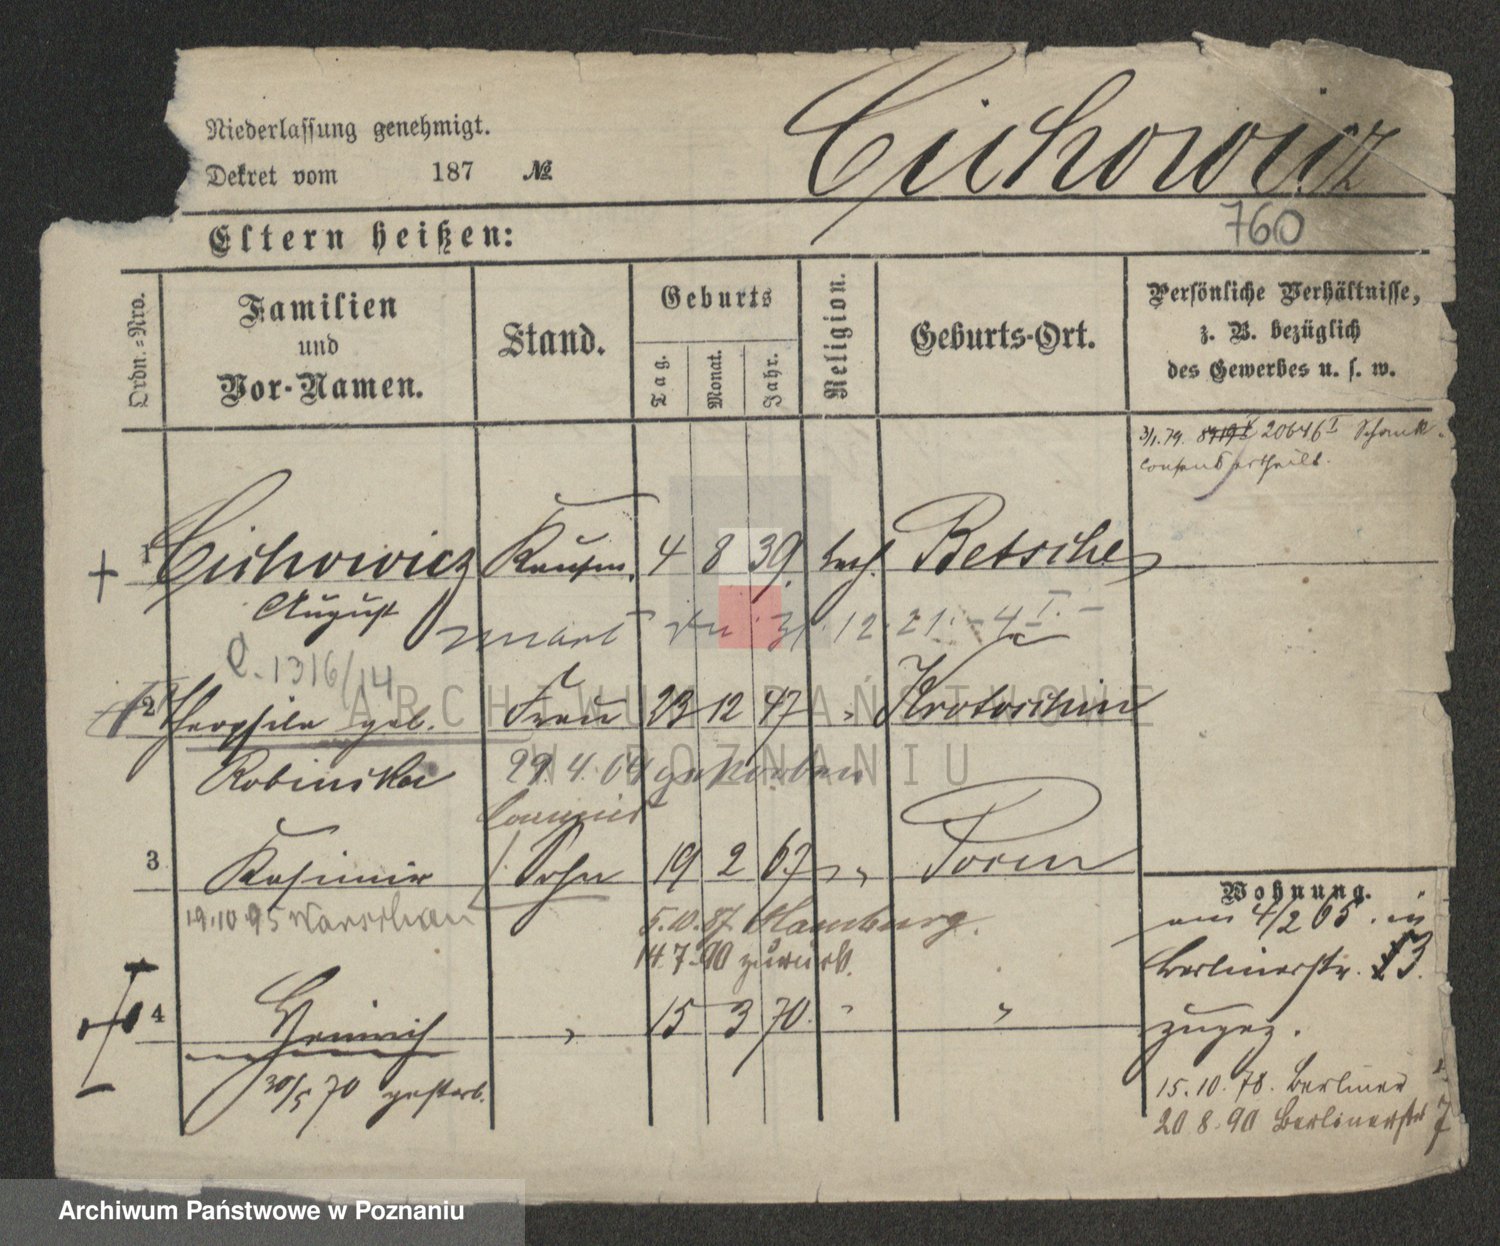 Niederlassung genehmigt.
Dekret vom 187 №
Cichowicz
760
Eltern heißen:
Ordn.=Nro.
Familien
und
Vor-Namen.
Stand.
Geburts
Tag.
Monat.
Jahr.
Religion.
Geburts-Ort.
Persönliche Verhältnisse,
z. B. bezüglich
des Gewerbes u. s. w.
3/1.79. 8919 I 20646 I Schank-
consens ertheilt.
1 Cichowicz Kaufm. 4 8 39 kath. Betsche
August
12. 21.
C. 1316/14
2 Theophila geb. Frau 23 12 47 " Krotoschin
Robinska 29.4.04 gestorben
Commis
3 Kasimir Sohn 19 2 67 " Posen
19.10.95 Warschau
5.10.87 Hamburg.
14.7.90 zurück.
4 Heinrich " 15 3 70 " "
30/5 70 gestorb.
Wohnung.
am 4/2 65. in
Berlinerstr. 13.
zugez.
15.10.78. Berliner
20.8.90 Berlinerstr 7
ARCHIWUM PAŃSTWOWE
W POZNANIU
Archiwum Państwowe w Poznaniu